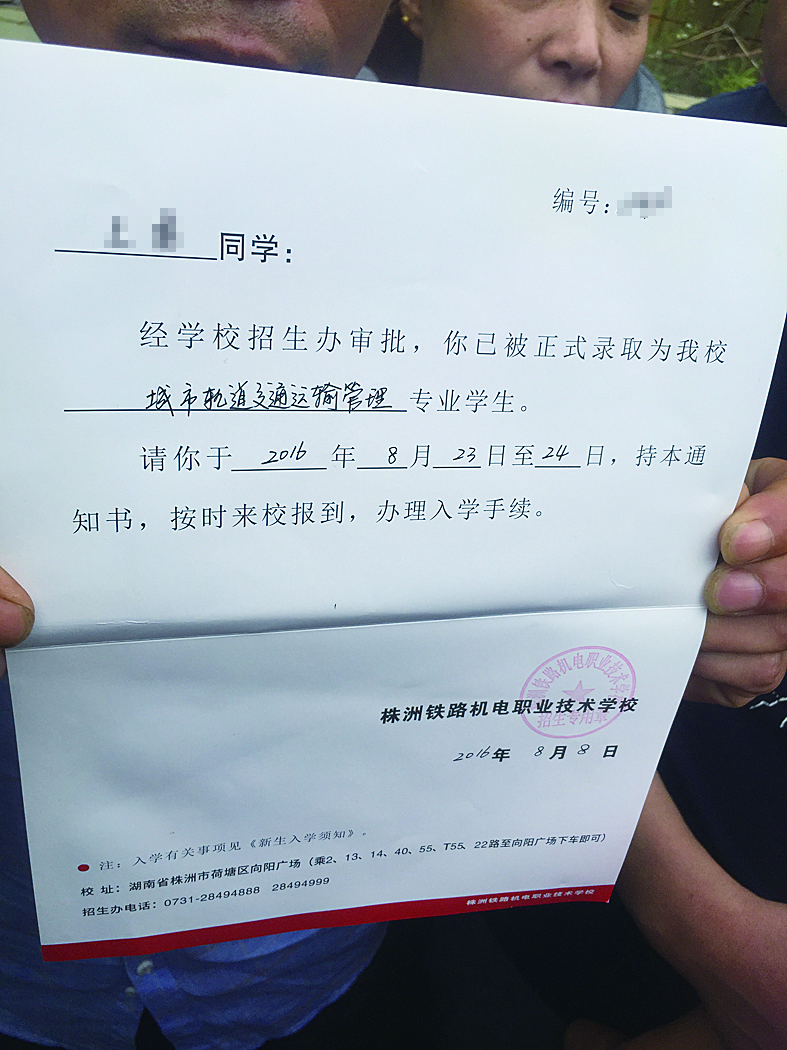 编号：
同学：
经学校招生办审批，你已被正式录取为我校
城市轨道交通运输管理专业学生。
请你于2016年8月23日至24日，持本通
知书，按时来校报到，办理入学手续。
株洲铁路机电职业技术学校
洲铁路机电职业技术学
招生专用章
2016年 8月8日
●注：入学有关事项见《新生入学须知》。
校 址：湖南省株洲市荷塘区向阳广场（乘2、13、14、40、55、T55、22路至向阳广场下车即可）
招生办电话：0731-28494888 28494999
株洲铁路机电职业技术学校